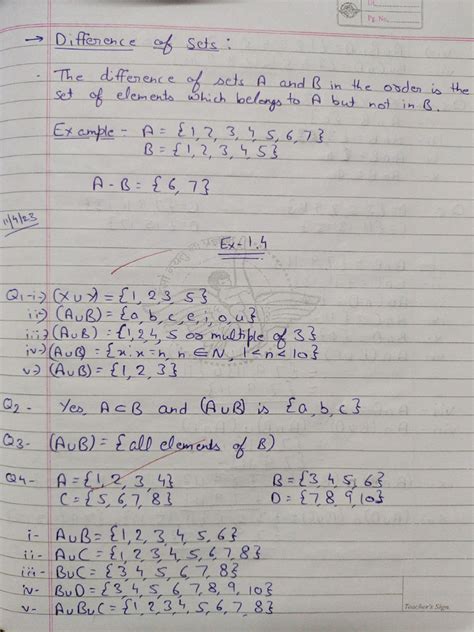 Dt.
Pg. No.
→ Difference of Sets :
- The difference of sets A and B in the order is the
set of elements which belongs to A but not in B.
Example - A = {1, 2, 3, 4, 5, 6, 7}
B = {1, 2, 3, 4, 5}
A - B = {6, 7}
11/4/23
Ex-1.4
Q1-i-) (X∪Y) = {1, 2 3 5}
ii-) (A∪B) = {a, b, c, e, i, o, u}
iii-) (A∪B) = {1, 2, 4, 5 or multiple of 3}
iv-) (A∪B) = {x: x=n, n ∈ N, 1<n<10}
v-) (A∪B) = {1, 2, 3}
Q2- Yes, A⊂B and (A∪B) is {a, b, c}
Q3- (A∪B) = {all elements of B)
Q4- A = {1, 2, 3, 4} B = {3, 4, 5, 6}
C = {5, 6, 7, 8} D = {7, 8, 9, 10}
i- A∪B = {1, 2, 3, 4, 5, 6}
ii- A∪C = {1, 2 3 4 5, 6, 7, 8}
iii- B∪C = {3, 4, 5, 6, 7, 8}
iv- B∪D = {3, 4, 5, 6, 7, 8, 9, 10}
v- A∪B∪C = {1, 2, 3, 4, 5, 6, 7, 8}
Teacher's Sign